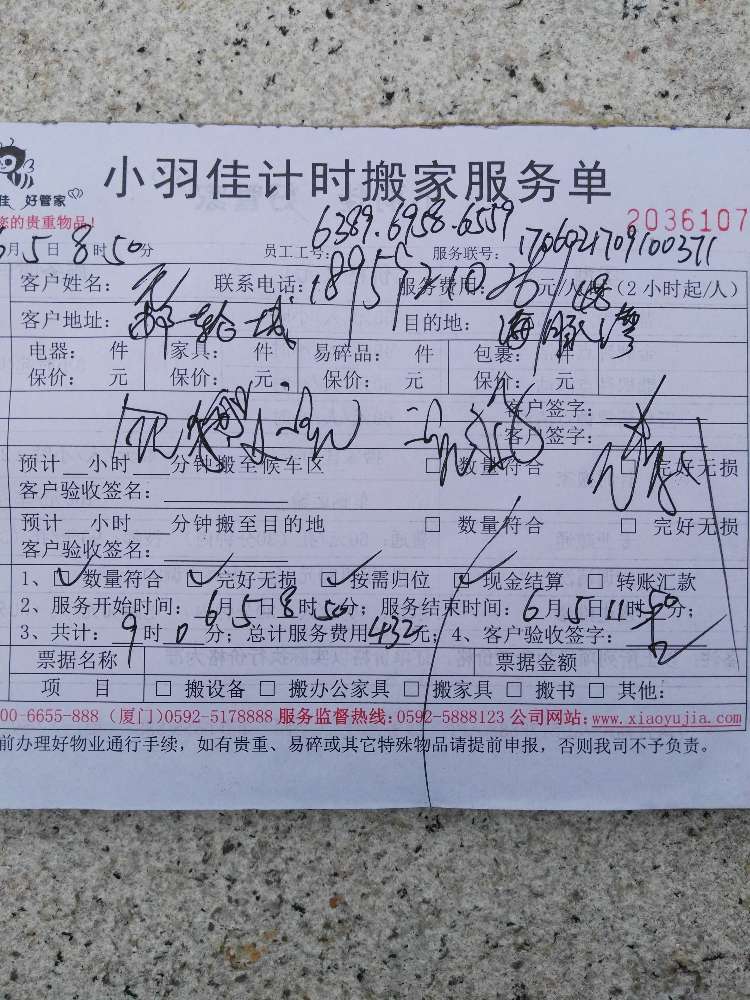 佳 好管家
小羽佳计时搬家服务单
您的贵重物品!
2036107
6389.6958.6559
月5日8时50分 员工工号: 服务联号: 1706021709100371
客户姓名: 联系电话: 服务费用: 元/人/ 48 (2小时起/人)
客户地址: 目的地: 海豚湾
电器: 件 家具: 件 易碎品: 件 包裹: 件
保价: 元 保价: 元 保价: 元 保价: 元
客户签字:
客户签字:
预计__小时__分钟搬至候车区 □ 数量符合 □ 完好无损
客户验收签名:
预计__小时__分钟搬至目的地 □ 数量符合 □ 完好无损
客户验收签名:
1、☑数量符合 ☑完好无损 ☑按需归位 ☑现金结算 □转账汇款
2、服务开始时间:6月5日8时50分;服务结束时间:6月5日11时50分;
3、共计:9时0分;总计服务费用432元;4、客户验收签字:
票据名称 票据金额
项 目 □ 搬设备 □ 搬办公家具 □ 搬家具 □ 搬书 □ 其他:
00-6655-888 (厦门)0592-5178888 服务监督热线:0592-5888123 公司网站:www.xiaoyujia.com
前办理好物业通行手续,如有贵重、易碎或其它特殊物品请提前申报,否则我司不予负责。